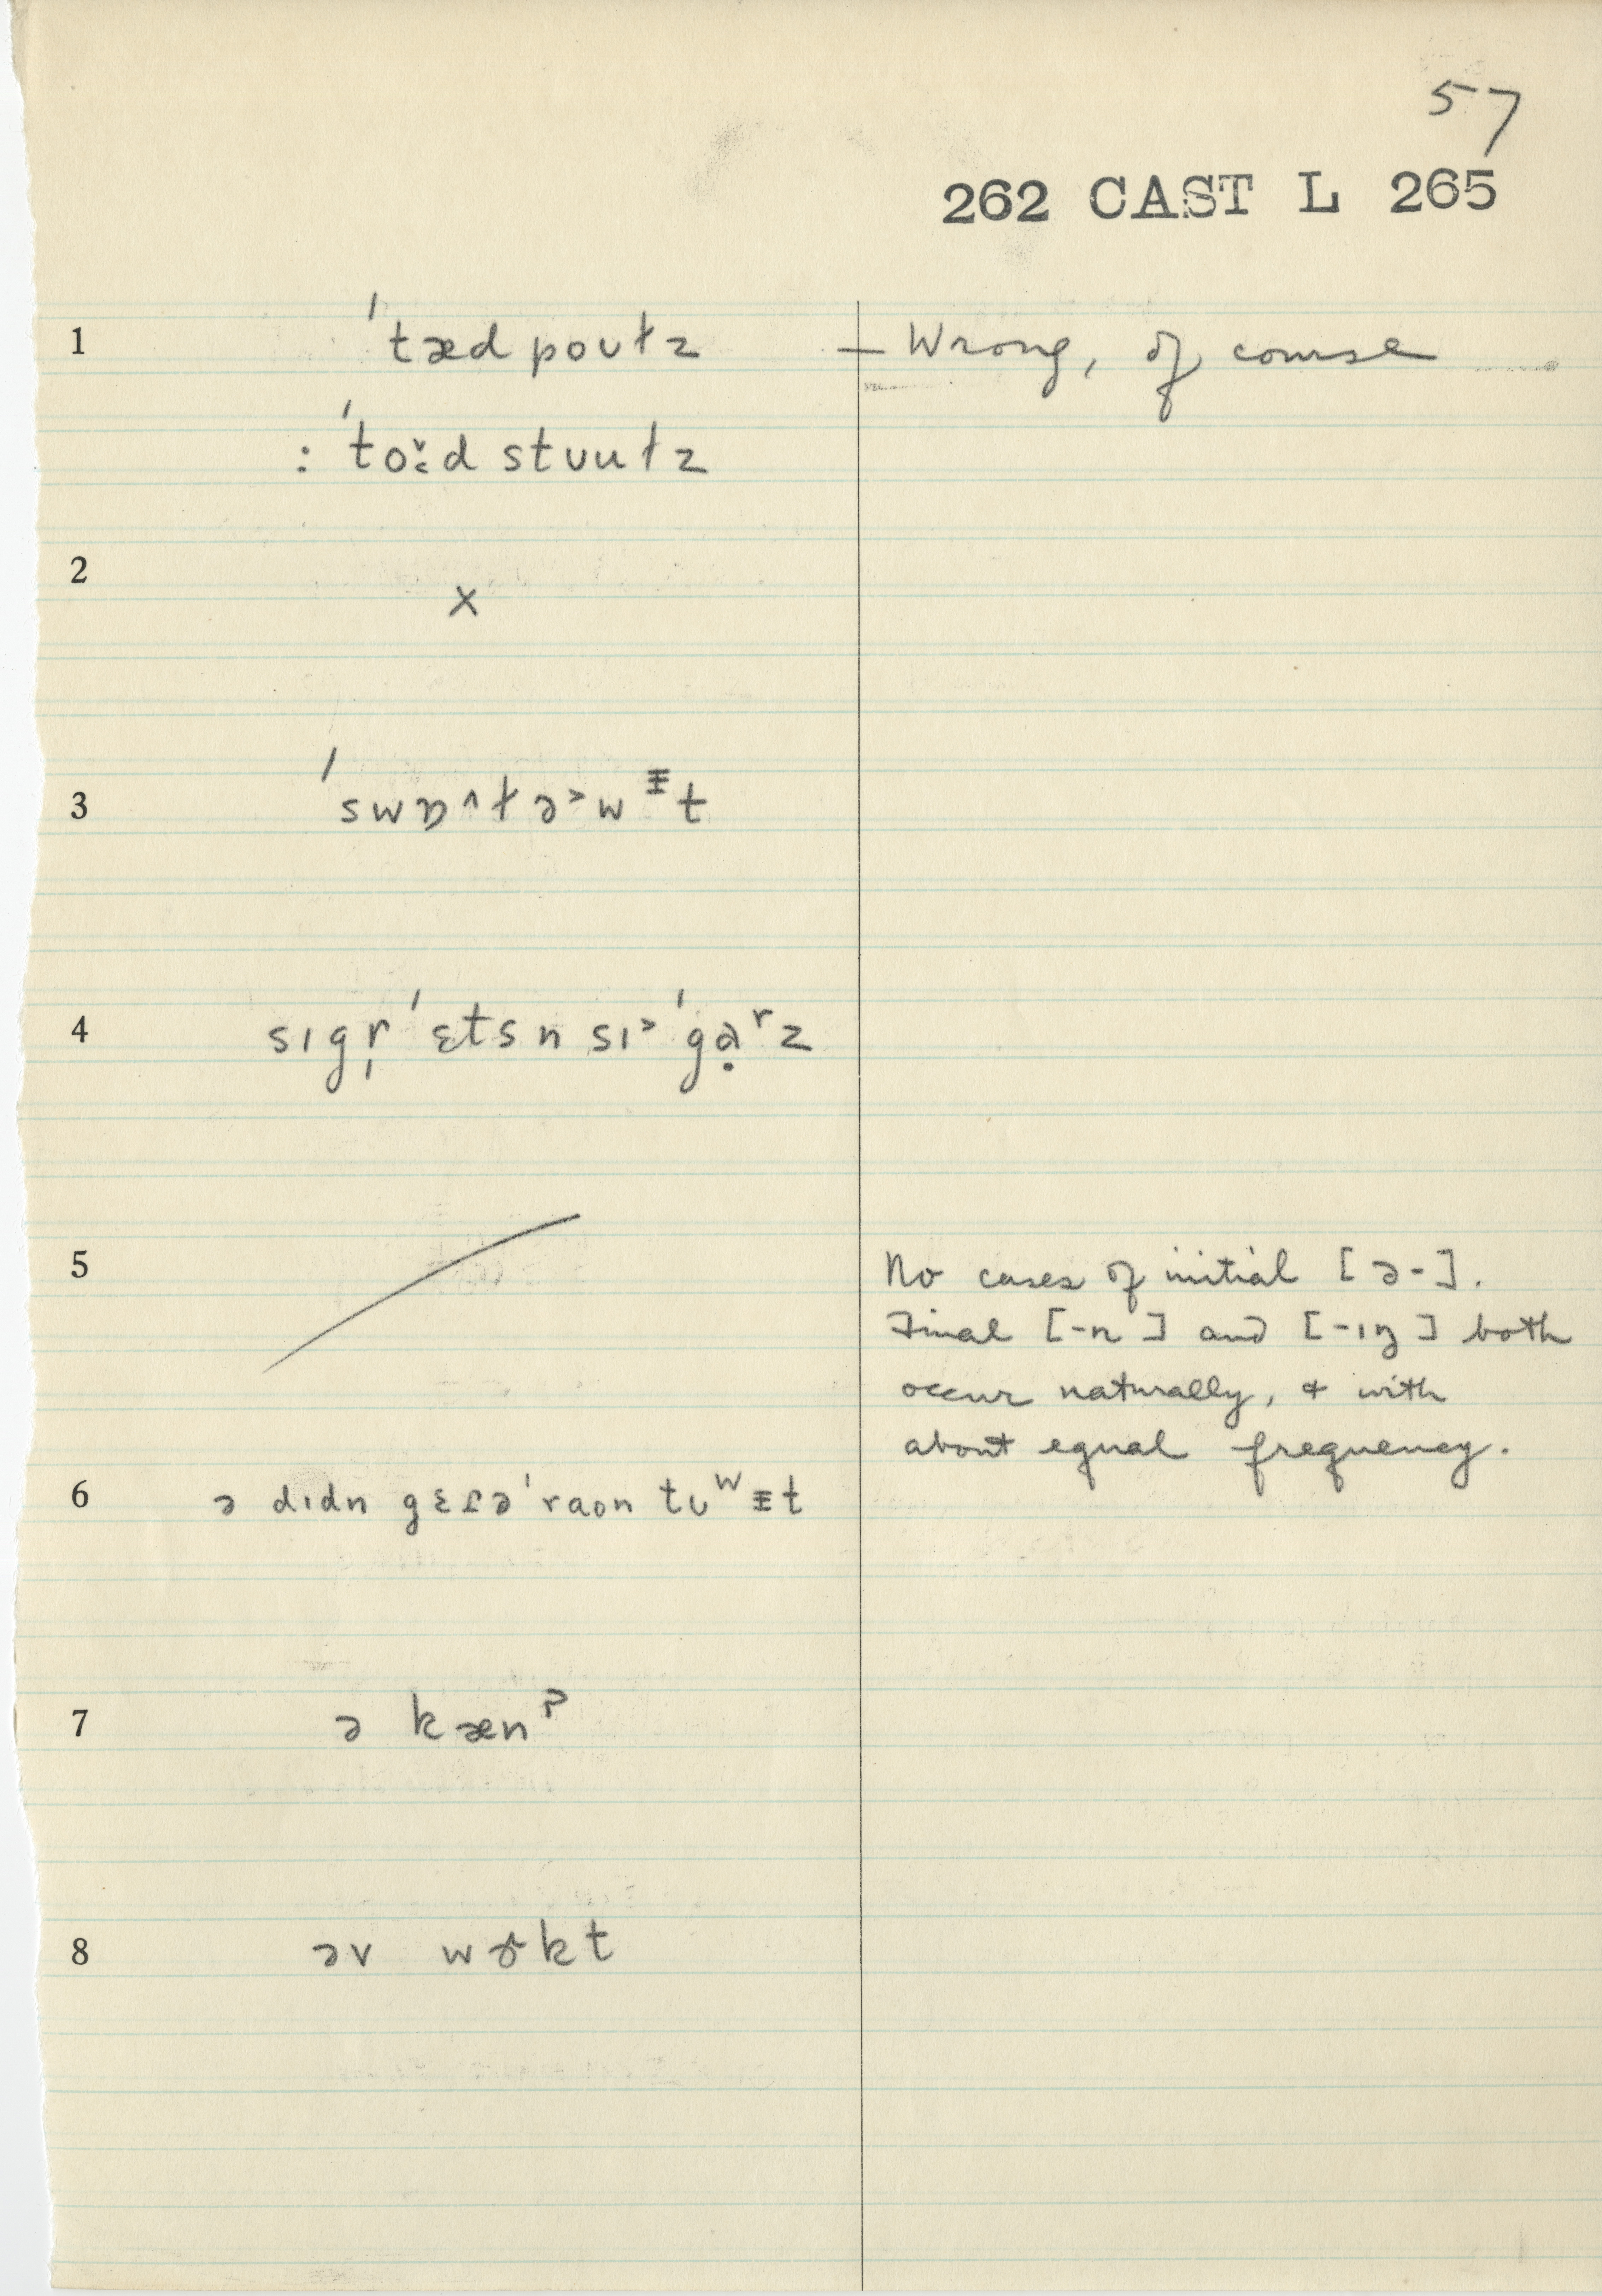 57
262 CAST L 265
1 ˈtædpoʊɫz — Wrong, of course
: ˈtoɪ̆d stʊuɫz
2 x
3 ˈswɒ˄ɫə˃wᵻt
4 sɪgr̩ˈɛts n sɪ˃ˈgɑ̣ʳz
5 No cases of initial [ə-].
Final [-n] and [-ɪŋ] both
occur naturally, & with
about equal frequency.
6 ə dɪdn gɛɾəˈraon tʊʷᵻt
7 ə kænˀ
8 əv wɝkt